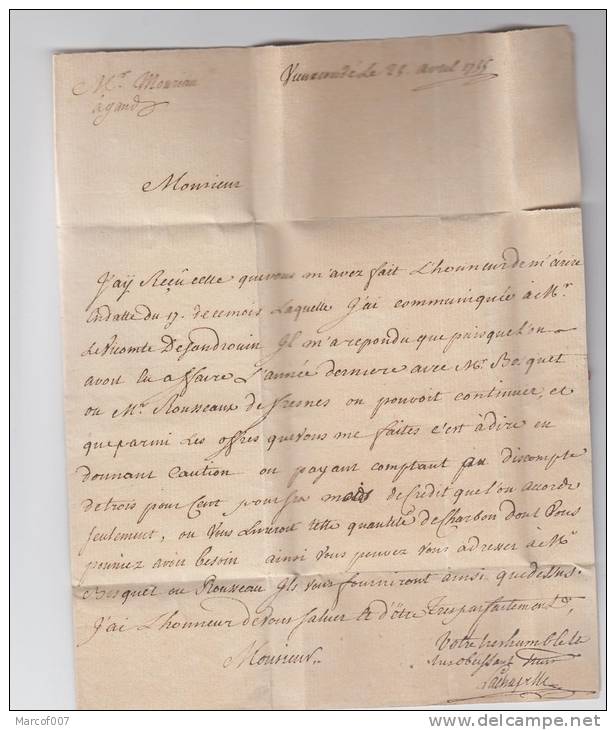 Mr. Moriau
à gand
Vieuxcondé Le 25 avril 1755
Monsieur
J'aÿ Reçû celle que vous m'avez fait L'honneur de m'écrire
En datte du 17. de ce mois Laquelle J'ai communiquée à Mr.
Le Vicomte Desandrouin Il m'a repondu que puisque l'on
avoit Eu affaire L'année derniere avec Mr. Bosquet
ou Mr. Rousseaux de fresnes on pouvoit continuer, et
que parmi Les offres que vous me faites c'est à dire en
donnant Caution ou payant comptant au discompte
de trois pour Cent pour six mois de Credit que l'on accorde
seulement, on Vous Livreroit cette quantité de Charbon dont Vous
pouriez avoir besoin ainsi Vous pouvez Vous adresser à Mr.
Bosquet ou Rousseau Ils vous fourniront ainsi que dessus.
J'ai L'honneur de Vous saluer et d'être Tres parfaitement
Monsieur
Votre tres humble et
tres obeissant
Lachapelle
Marcof007
www.delcampe.net